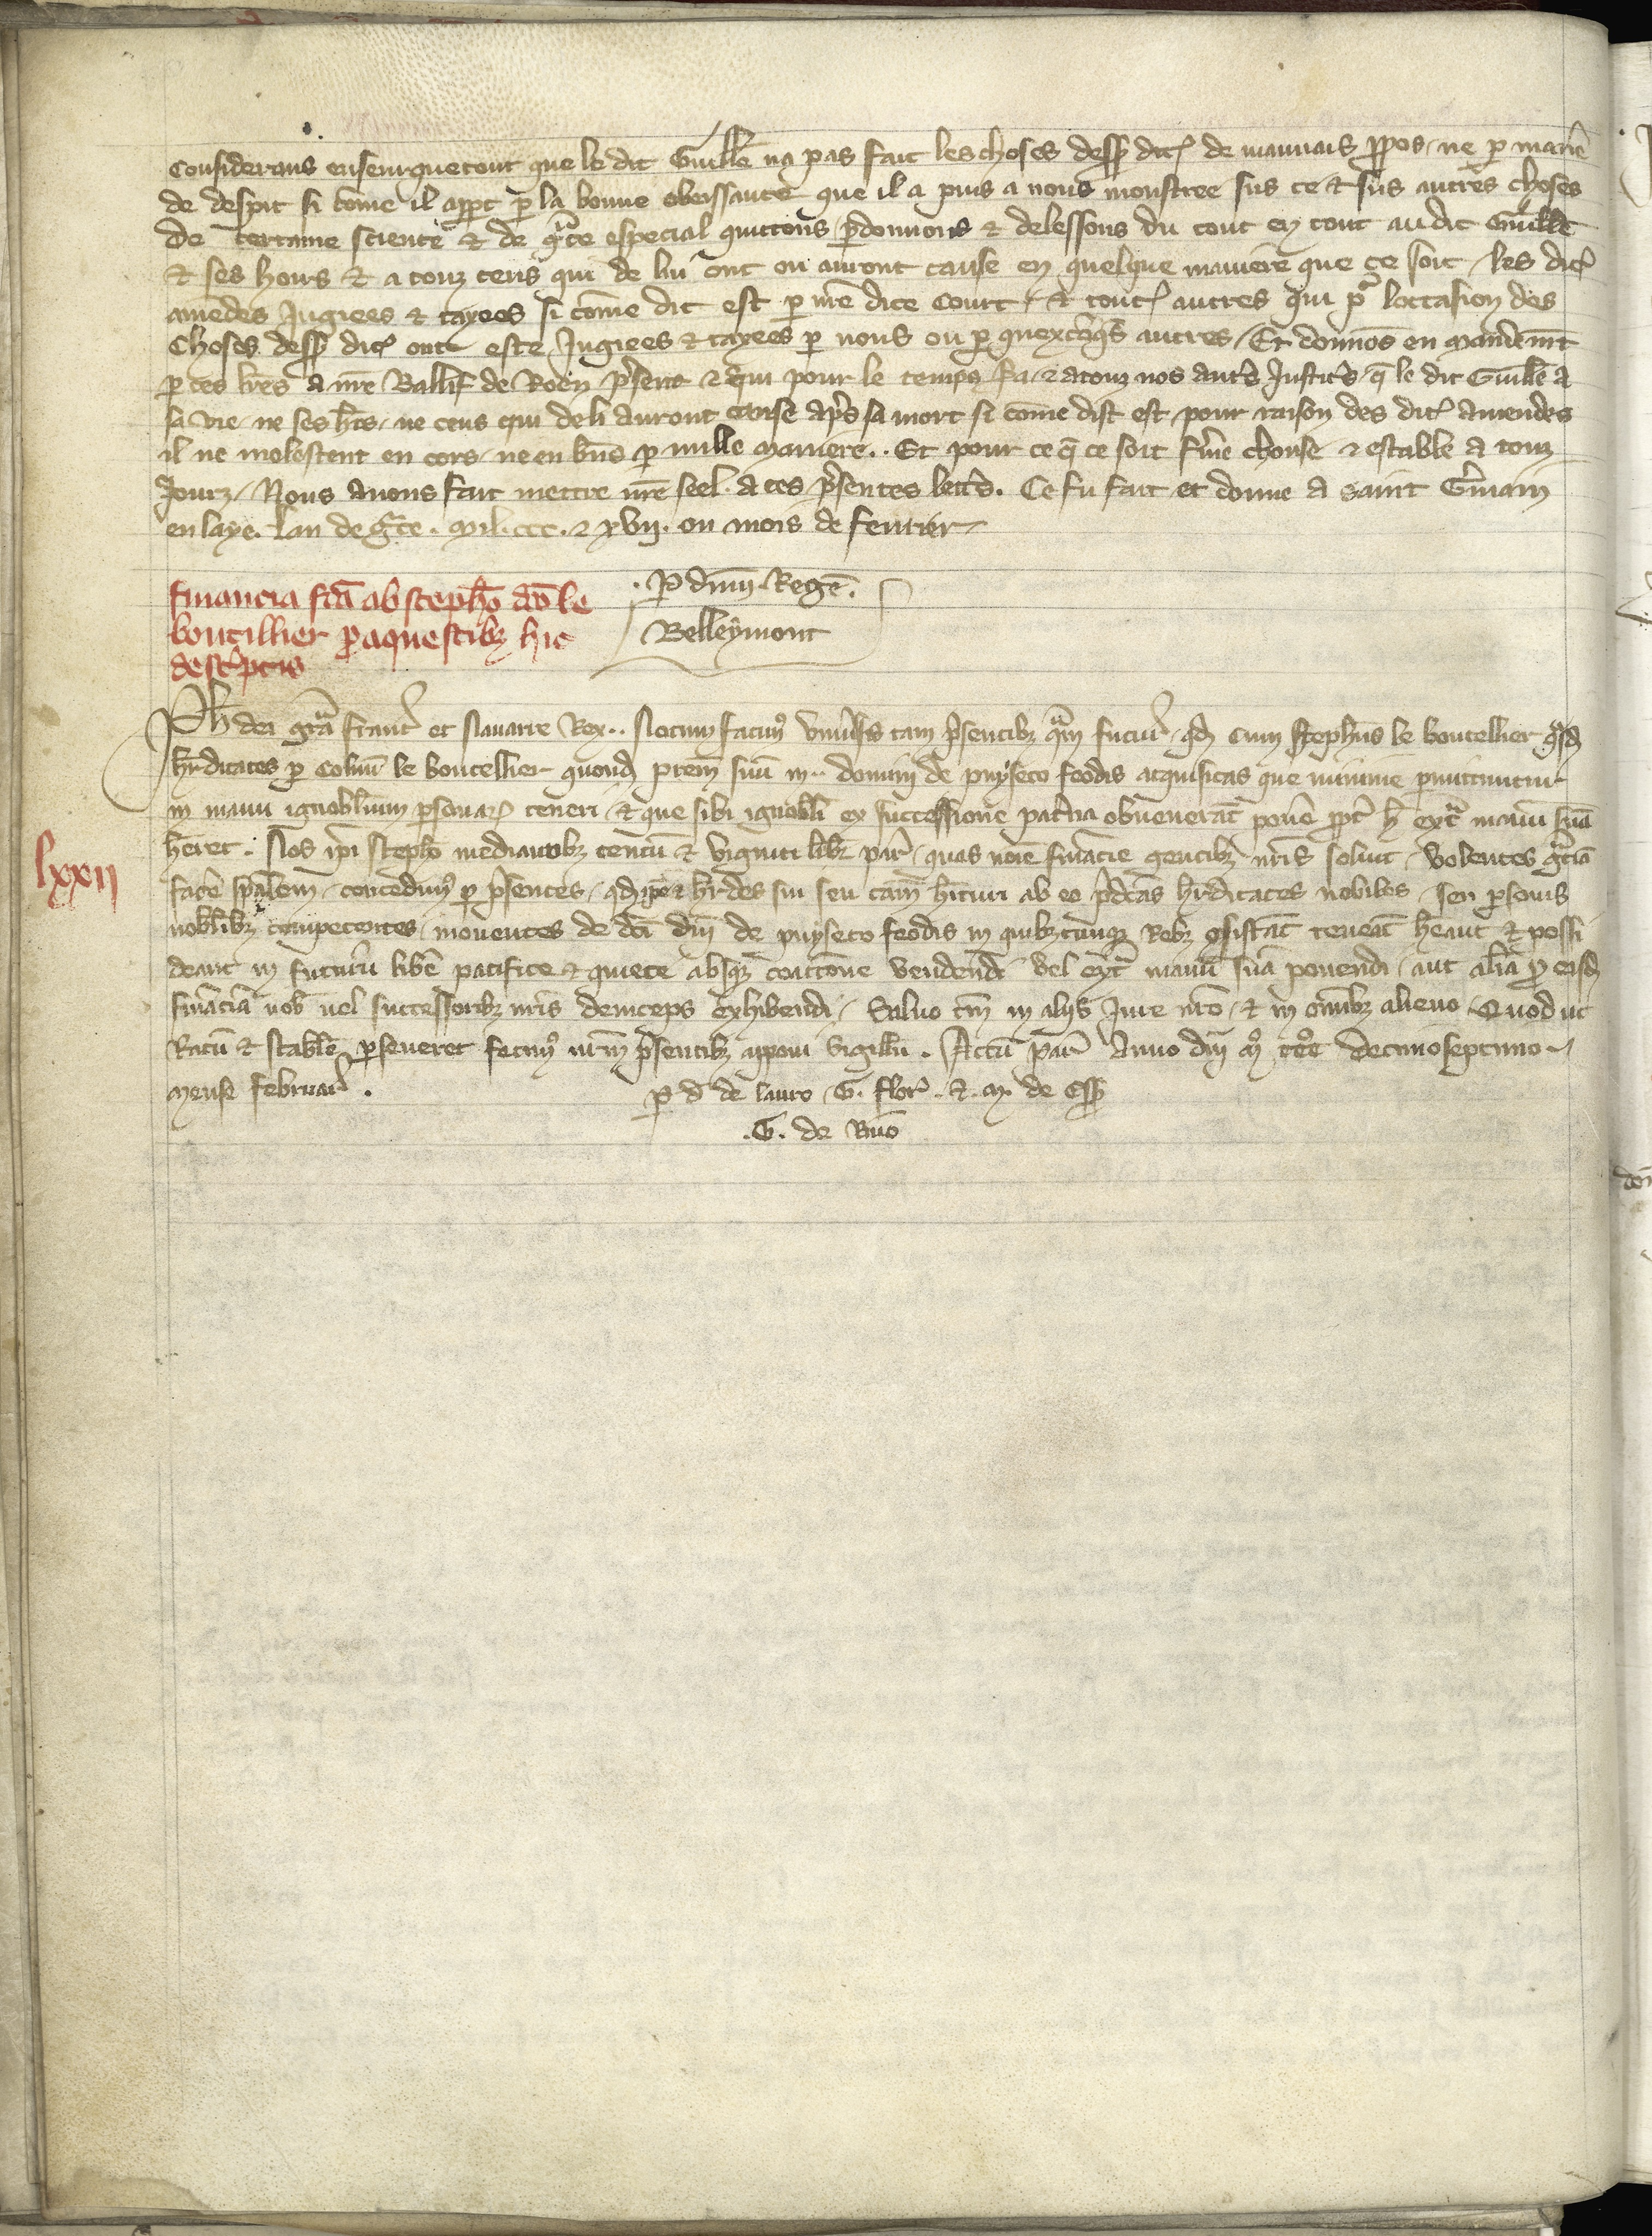 Considerans enseurquetout que le dit Guille na pas fait les choses dess dit de mauuais ppos ne p manie
de despit si come il appt p la bonne obeissance que il a puis a nous monstree sus ce & sus autres choses
De certaine science & de gce especial quittons pdonnons & delessons du tout en tout audit Guille
& ses hoirs & a touz ceus qui de lui ont ou auront cause en quelque maniere que ce soit les dit
amedes Jugiees & tayees si come dit est p nre dite Court & tout autres qui p loccasion des
choses dess dit ont este Jugiees & tayees p nous ou p quexcoqs autres Et donnos en mandemt
p ces lres a nre Ballif de Roen psent & qui pour le temps sa & a touz nos autes Justices q le dit Guille a
sa vie ne ses hes ne ceus qui de li auront cause apres sa mort si come dist est pour raison des dit amendes
il ne molestent en cors ne en bns p nulle maniere . Et pour ce q ce soit fme chouse & estable a touz
Jourz Nous auons fait mettre nre seel a ces psentes lettes . Ce fu fait et donne a saint Gmain
en laye . lan de gce . mil . ccc . & xvij . ou mois de feurier
financia fca ab stepho dco le
boutillier p aquestibz hic
descptis
. P dnm Rege .
Belleymont
lxxij
Ph dei gra franc et Nauarre Rex .. Notum facim vniusis tam psentibz qm futur qd cum Stephus le boutellier qsd
hrditates p Colinu le boutellier quond prem suu in .. domini de puyseto feodis acquisitas que minime pmittuntur
in manu ignobilium psonar teneri & que sibi ignobili ex successione patna obuenerat pone ppt h ext manu sua
heret . Nos ipi Stepho mediantibz centu & viginti libr par quas noie financie gentibz nris soluit volentes gciam
face spalem concedim p psentes qd ipe & hrdes sui seu cam hituri ab eo pdcas hrditates nobiles seu psonis
nobilibz competentes mouentes de dci dni de puyseto feodis in quibzcunqz Rebz osistat teneat heant & possi
deant in futuru libe pacifice & quiete absqz coactione vendendi vel ext manu sua ponendi aut alia p eisd
financia nob uel successoribz nris deinceps exhibendi Saluo tm in alijs Jure nro & in omibz alieno Quod ut
Ratu & stabile pseueret fecim nrm psentibz apponi sigillu . Actu par Anno dni m ccc decimoseptimo
mense februar .
p d de lauro . G . flor . & . m . de Ess
. G . de Riuo